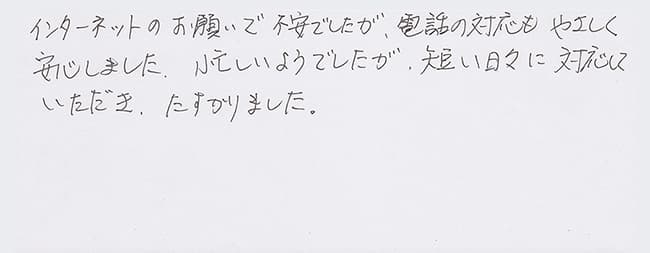 インターネットのお願いで不安でしたが、電話の対応もやさしく
安心しました。忙しいようでしたが、短い日々に対応して
いただき、たすかりました。